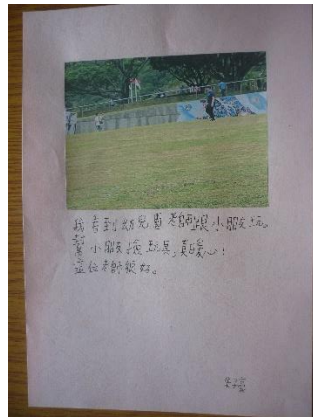 我看到幼兒園老師跟小朋友玩。
幫小朋友撿玩具,真暖心!
這位老師很好。